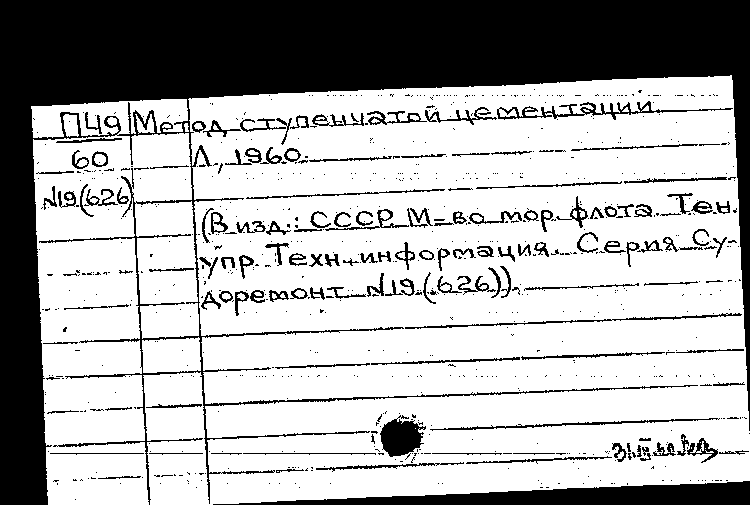 П49 Метод ступенчатой цементации.
60 Л, 1960.
N19(626)
(В изд.: СССР. М-во мор. флота. Тен.
упр. Техн. информация. Серия Су-
доремонт N19(626)).
31.III.60.